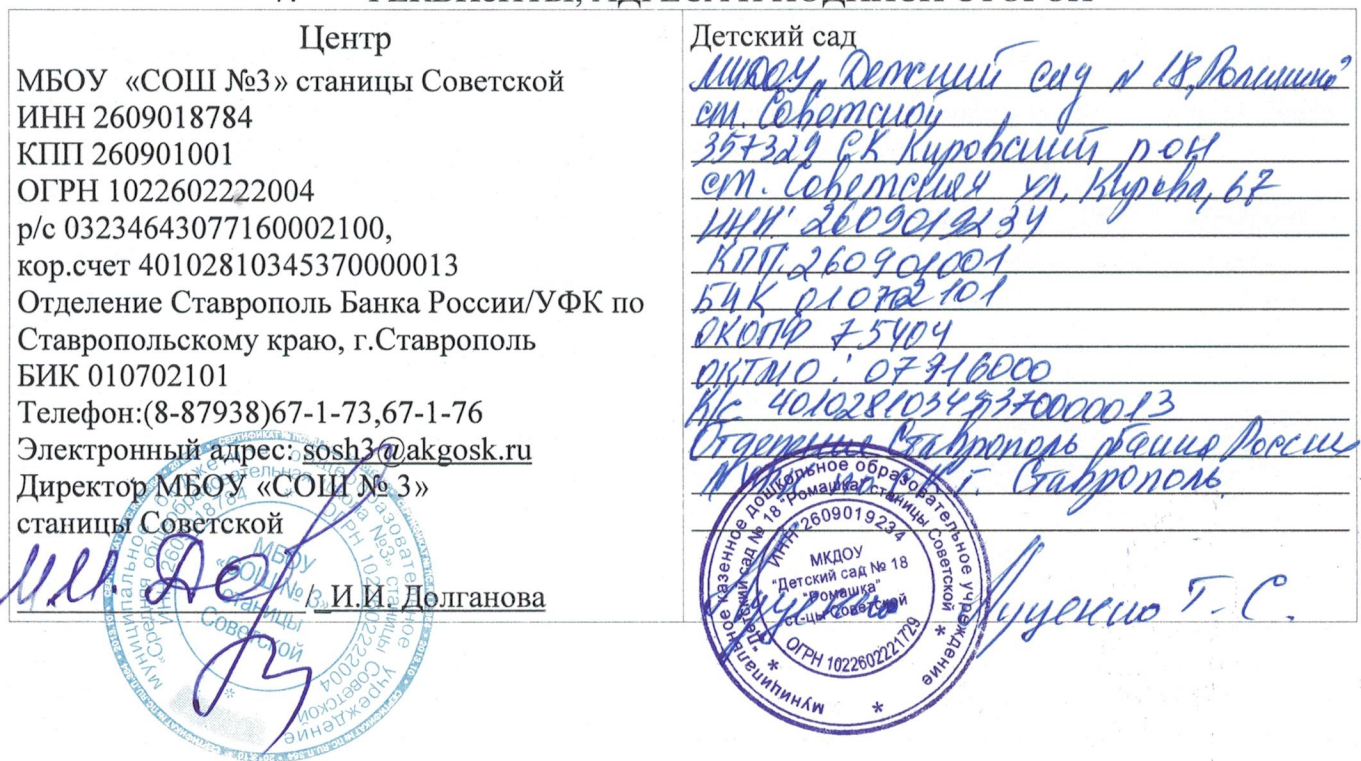 Центр
МБОУ «СОШ №3» станицы Советской
ИНН 2609018784
КПП 260901001
ОГРН 1022602222004
р/с 03234643077160002100,
кор.счет 40102810345370000013
Отделение Ставрополь Банка России/УФК по
Ставропольскому краю, г.Ставрополь
БИК 010702101
Телефон:(8-87938)67-1-73,67-1-76
Электронный адрес: sosh3@akgosk.ru
Директор МБОУ «СОШ № 3»
станицы Советской
/ И.И. Долганова
Детский сад
МКДОУ "Детский сад № 18 "Ромашка"
ст. Советской
357329 СК Кировский рон
ст. Советская ул. Кирова, 67
ИНН: 2609019234
КПП: 260901001
БИК 010702101
ОКОПФ 75404
ОКТМО: 07716000
К/С 40102810345370000013
Отделение Ставрополь банка России
г. Ставрополь
Луценко Т.С.
МБОУ
«СОШ №3»
станицы
Советской
Муниципальное казенное дошкольное образовательное учреждение
"Детский сад № 18 "Ромашка" станицы Советской
ИНН 2609019234
МКДОУ
"Детский сад № 18
"Ромашка"
ст-цы Советской
ОГРН 1022602221729